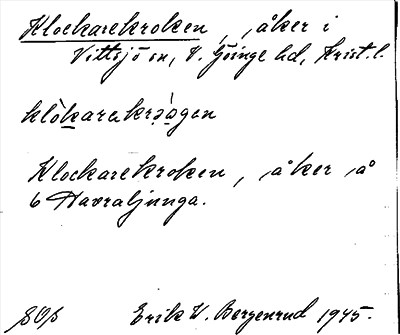 Klockarekroken, åker i
Vittsjö sn, V. Göinge hd, Krist. l.
klòkarekrɔ̀agen
Klockarekroken, åker på
6 Havraljunga.
Erik W. Bergenrud 1945.